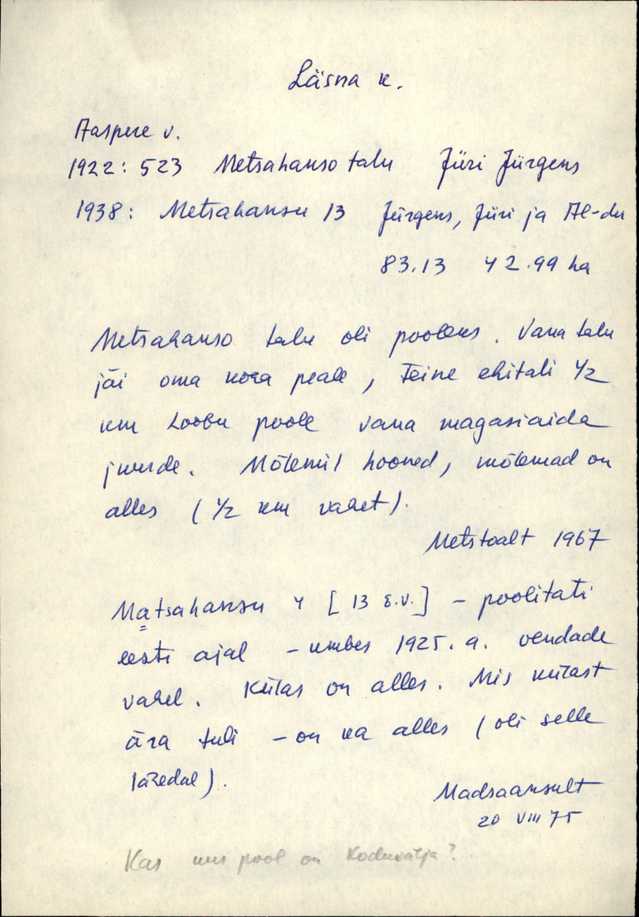 Läsna k.
Aaspere v.
1922: 523 Metsahanso talu Jüri Jürgens
1938: Metsahansu 13 Jürgens, Jüri ja Al-du
83.13 42.99 ha
Metsahanso talu oli pooleks. Vana talu
jäi oma koha peale, Teine ehitati 1/2
km Loobu poole vana magasiaida
juurde. Mõlemil hooned, mõlemad on
alles (1/2 km vahet).
Metstoalt 1967
Matsahansu 4 [13 E.V.] – poolitati
eesti ajal – umbes 1925. a. vendade
vahel. Külas on alles. Mis külast
ära tuli – on ka alles (oli selle
lähedal).
Madsaansult
20 VIII 75
Kas uus pool on Koduvälja?